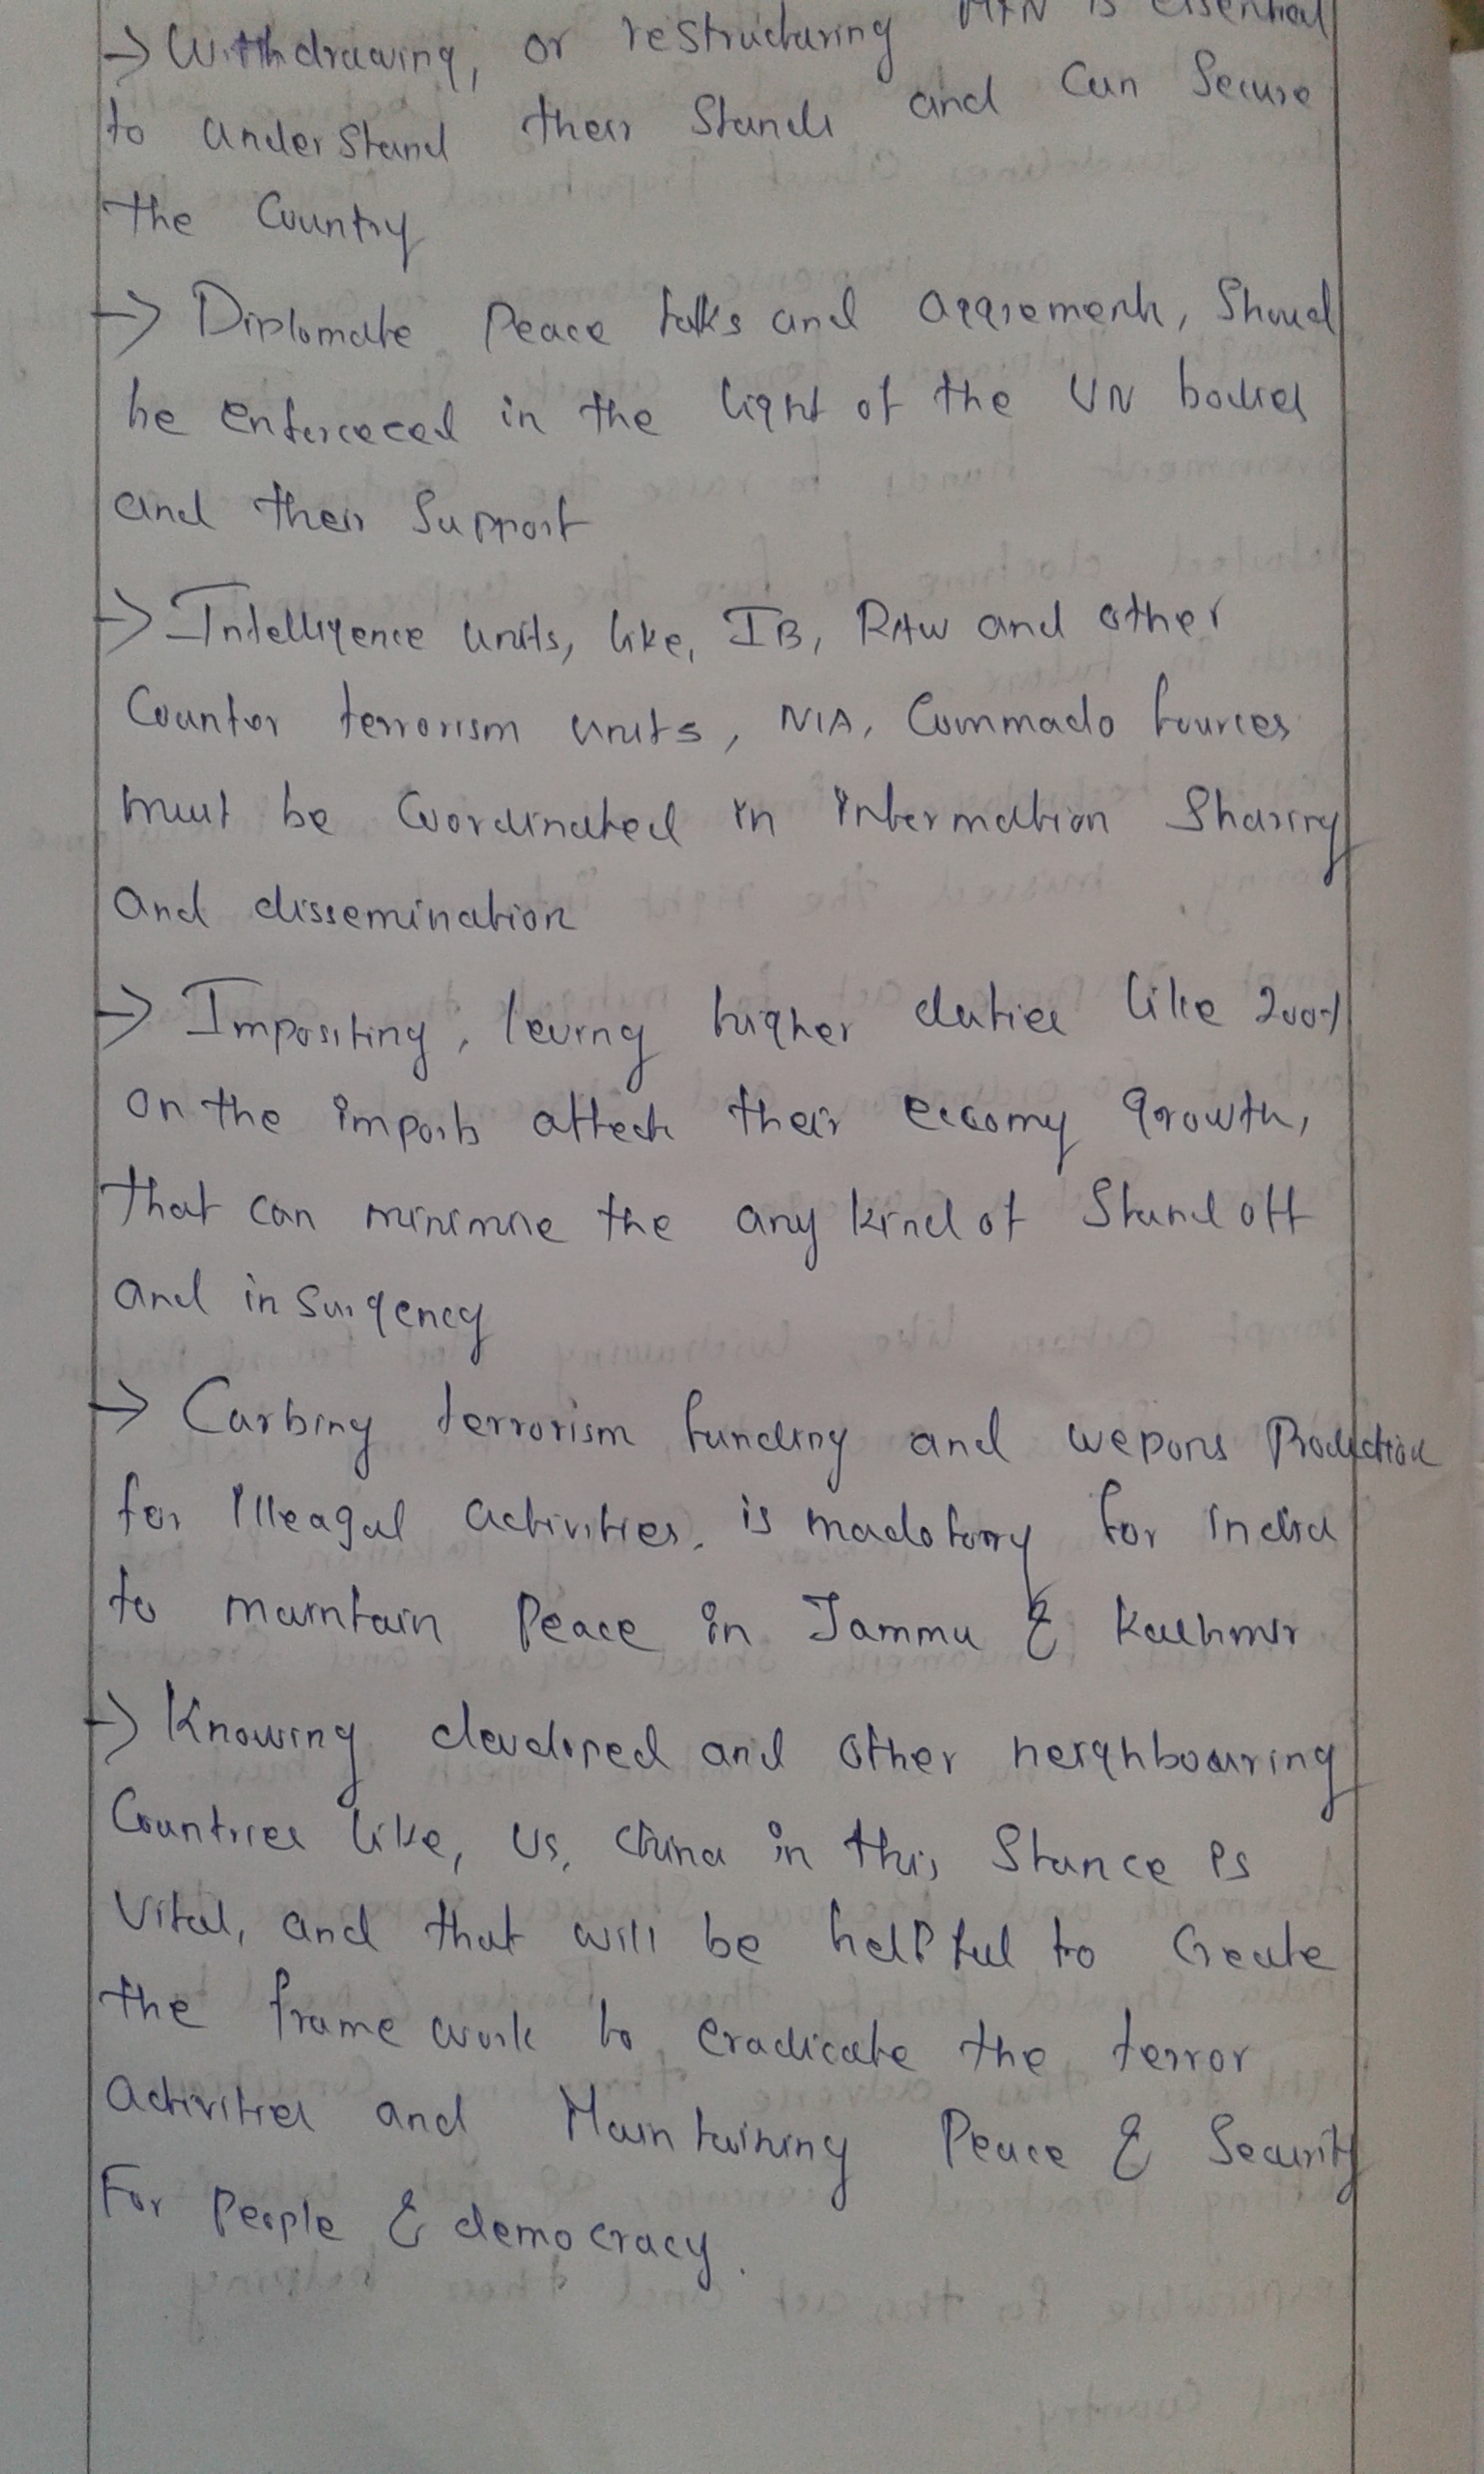 → Withdrawing, or restructuring MFN is essential
to understand their Stands and Can Secure
the Country
→ Diplomate Peace talks and aggrements, Shoud
be enforceced in the light of the UN bodies
and their Support
→ Intelligence units, like, IB, RAW and other
Counter terrorism units, NIA, Commado fources
must be Coordinated in information Sharing
and dissemination
→ Impositing, leving higher duties like 200%
on the imports affects their eccomy growth,
that can minimise the any kind of Stand off
and insurgency
→ Carbing terrorism funding and wepons Production
for illeagal activities, is madotory for india
to maintain Peace in Jammu & Kashmir
→ Knowing developed and other neighbouring
Countries like, US, China in this Stance is
Vital, and that will be helpful to Create
the frame work to eradicate the terror
activities and Maintaining Peace & Security
For People & democracy.